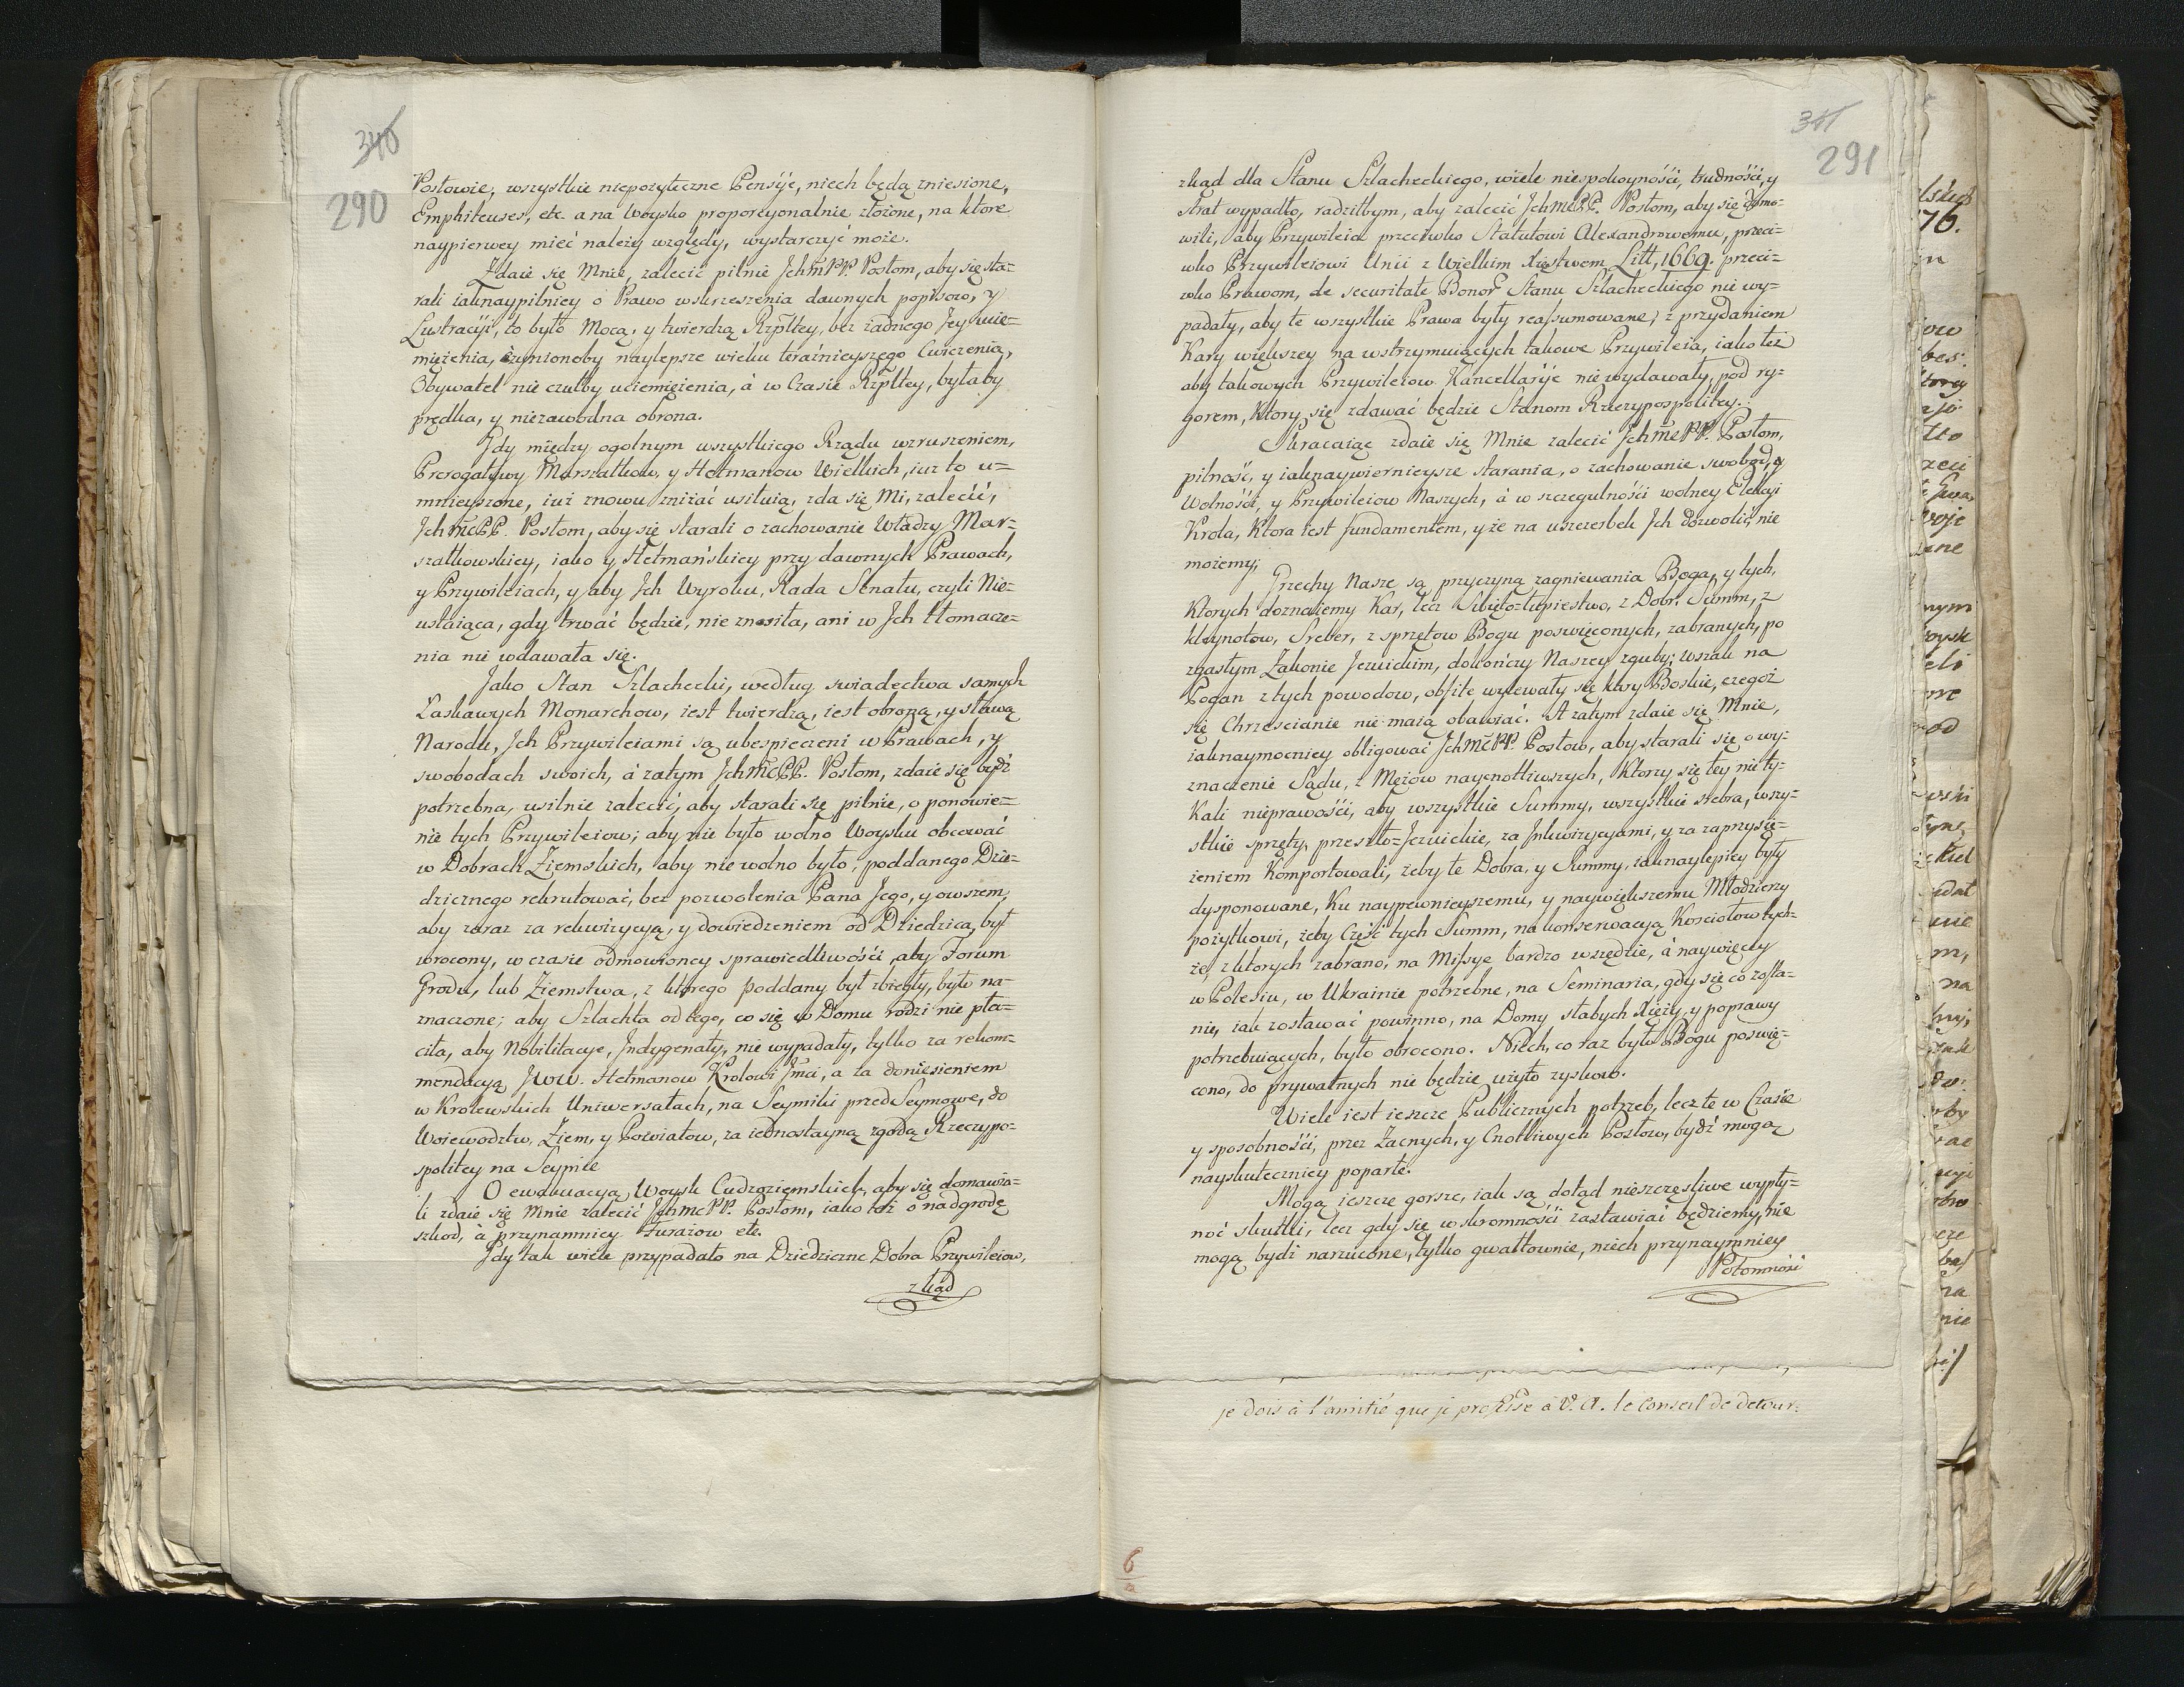 340
290
Posłowie, wszystkie niepożyteczne Pensyje, niech będą zniesione,
Emphiteuses, etc. a na Woysko proporcyonalnie złożone, na ktore
naypierwey mieć należy względy, wystarczyć może.
Zdaie się Mnie, zalecić pilnie JchmPP. Posłom, aby się sta=
rali iaknaypilniey o Prawo wskrzeszenia dawnych popisow, y
Lustracyi, to było Mocą, y twierdzą Rzpltey, bez żadnego Jey ucie=
miężenia, czynionoby naylepsze wieku teraźnieyszego Cwiczenia,
Obywatel nie czułby uciemiężenia, à w Czasie Rzpltey, byłaby
prędka, y niezawodna obrona.
Gdy między ogolnym wszystkiego Rządu wzruszeniem,
Prerogatywy Marszałkow, y Hetmanow Wielkich, iuż to u=
mnieyszone, iuż znowu zniżać usiłuią, zda się Mi, zalecić,
JchmcPP. Posłom, aby się starali o zachowanie Władzy Mar=
szałkowskiey, iako y Hetmańskiey przy dawnych Prawach,
y Przywileiach, y aby Jch Wyroku, Rada Senatu, czyli Nie=
ustaiąca, gdy trwać będzie, nie znosiła, ani w Jch tłomacze=
nia nie wdawała się.
Jako Stan Szlachecki, według swiadectwa samych
Łaskawych Monarchow, iest twierdzą, iest obroną, y sławą
Narodu, Jch Przywileiami są ubespieczeni w Prawach, y
swobodach swoich, à zatym JchmcPP. Posłom, zdaie się bydź
potrzebna, usilnie zalecić, aby starali się pilnie, o ponowie=
nie tych Przywileiow; aby nie było wolno Woysku obcować
w Dobrach Ziemskich, aby nie wolno było, poddanego Dzie=
dzicznego rekrutować, bez pozwolenia Pana Jego, y owszem,
aby zaraz za rekwizycyą, y dowiedzeniem od Dziedzica, był
wrocony, w czasie odmowioney sprawiedliwości, aby Forum
Grodu, lub Ziemstwa, z ktorego poddany był zbiegły, było na=
znaczone; aby Szlachta od tego, co się w Domu rodzi nie pła=
ciła, aby Nobilitacye, Jndygenaty, nie wypadały, tylko za rekom=
mendacyą JWW. Hetmanow Krolowi Jmci, a za doniesieniem
w Krolewskich Uniwersałach, na Seymiki przedSeymowe, do
Woiewodztw, Ziem, y Powiatow, za iednostayną zgodą Rzeczypo=
spolitey na Seymie
O ewakuacyą Woysk Cudzoziemskich, aby się domawia=
li zdaie się Mnie zalecić JchmcPP. Posłom, iako też o nadgrodę
szkod, à przynamniey Furażow etc.
Gdy tak wiele przypadało na Dziedziczne Dobra Przywileiow,
zkąd
341
291
zkąd dla Stanu Szlacheckiego, wiele niespokoyności, trudności, y
strat wypadło, radziłbym, aby zalecić JchmcPP. Posłom, aby się domo=
wili, aby Przywileia przeciwko Statutowi Alexandrowemu, przeci=
wko Przywileiowi Unii z Wielkim Xięstwem Litt, 1669. przeci=
wko Prawom, de securitate Bonor Stanu Szlacheckiego nie wy=
padały, aby te wszystkie Prawa były reassumowane, z przydaniem
Kary większey na wstrzymuiących takowe Przywileia, iako też
aby takowych Przywileiow Kancellaryje nie wydawały, pod ry=
gorem, Ktory się zdawać będzie Stanom Rzeczypospolitey.
Skracaiąc zdaie się Mnie zalecić JchmcPP. Posłom,
pilność, y iaknaywiernieysze starania, o zachowanie swobod, y
Wolności, y Przywileiow Naszych, à w szczegulności wolney Elekcyi
Krola, Ktora iest fundamentem, y że na uszczerbek Jch dozwolić nie
możemy;
Grzechy Nasze są przyczyną zagniewania Boga, y tych,
Ktorych doznaiemy Kar, lecz Swięto=kupiestwo, z Dobr, Summ, z
kleynotow, Sreber, z sprzętow Bogu poswięconych, zabranych, po
zgasłym Zakonie Jezuickim, dokończy Naszey zguby; wszak na
Pogan z tych powodow, obfite wylewały się kary Boskie, czegoż
się Chrzescianie nie maią obawiać. A zatym zdaie się Mnie,
iaknaymocniey obligować JchmcPP. Posłow, aby starali się o wy=
znaczenie Sądu, z Mężow naycnotliwszych, Ktorzy się tey nie ty=
Kali nieprawości, aby wszystkie Summy, wszystkie srebra, wszy=
stkie sprzęty, przeszło=Jezuickie, za Jnkwizycyami, y za zaprzysię=
żeniem Komportowali, żeby te Dobra, y Summy, iaknaylepiey były
dysponowane, Ku naypewnieyszemu, y naywiększemu Młodzieży
pożytkowi, żeby Część tych Summ, na konserwacyą Kosciołow tych=
że, z ktorych zabrano, na Missye bardzo wszędzie, à naywięcey
w Polesiu, w Ukrainie potrzebne, na Seminaria, gdy się co zosta=
nie, iak zostawać powinno, na Domy słabych Xięży, y poprawy
potrzebuiących, było obrocono. Niech, co raz było Bogu poswię=
cono, do prywatnych nie będzie użyto zyskow.
Wiele iest ieszcze Publicznych potrzeb, lecz te w Czasie
y sposobności, przez Zacnych, y Cnotliwych Posłow, bydź mogą
nayskuteczniey poparte.
Mogą ieszcze gorsze, iak są dotąd nieszczęsliwe wypły=
nąć skutki, lecz gdy się w skromności zastawiać będziemy, nie
mogą bydź narzucone, tylko gwałtownie, niech przynaymniey
Potomności
je dois à l'amitié que je professe à V. A. le Conseil de detour=
6